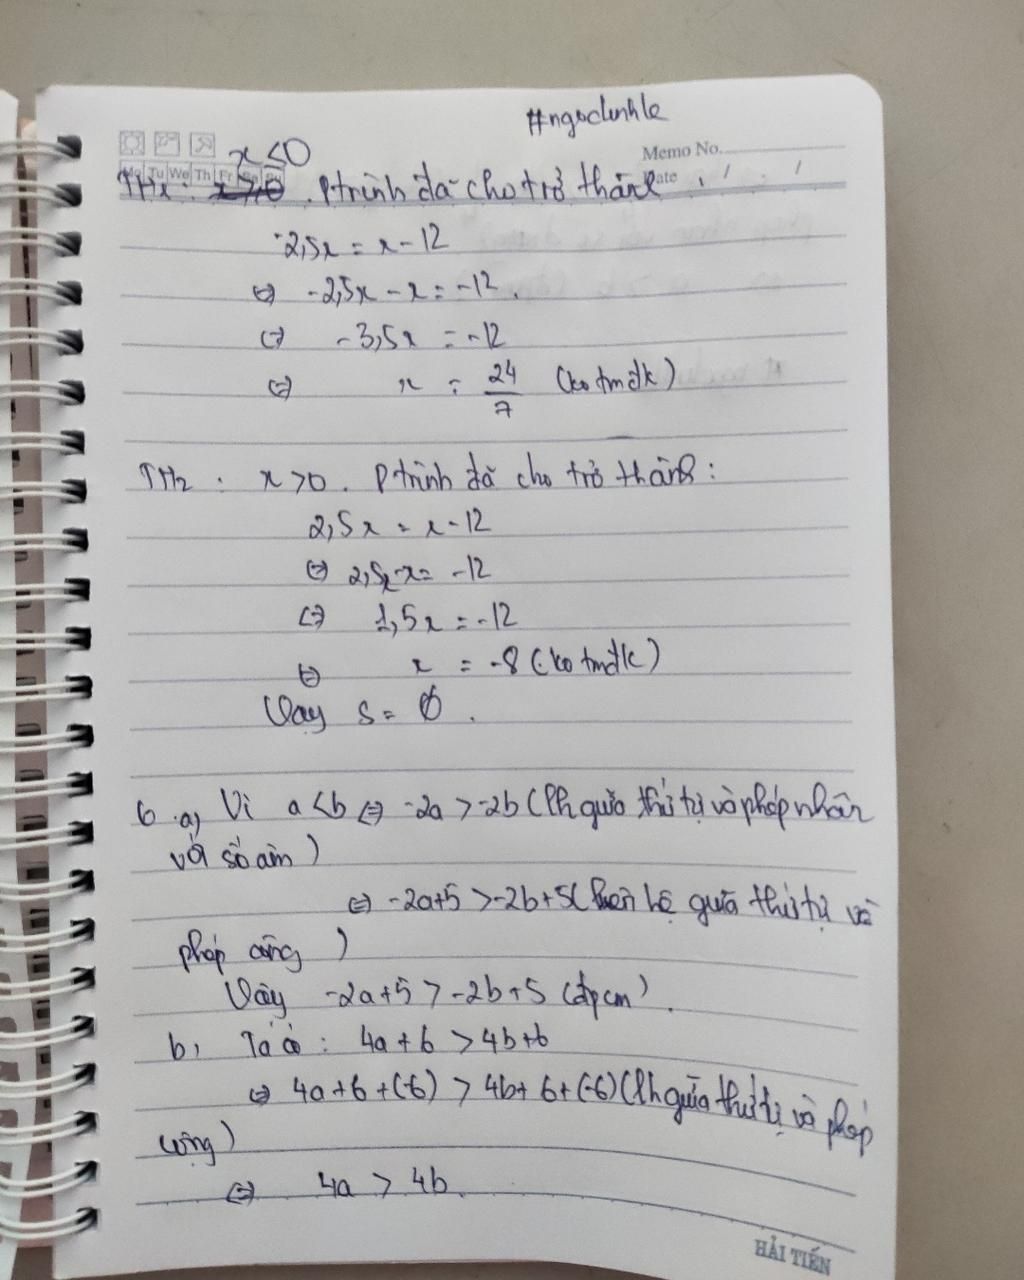 #ngoclinhle
Memo No.
Mo Tu We Th Fr Sa Su
Date / /
x<0
TH1: x>0. Ptrình đã cho trở thành
-2,5x = x-12
⇔ -2,5x - x = -12.
⇔ -3,5x = -12
⇔ x = 24/7 (ko tmđk)
TH2: x>0. Ptrình đã cho trở thành:
2,5x = x-12
⇔ 2,5x-x = -12
⇔ 1,5x = -12
⇔ x = -8 (ko tmđk)
Vậy S = ∅.
6.a, Vì a<b ⇔ -2a > -2b (lh giữa thứ tự và phép nhân
với số âm)
⇔ -2a+5 > -2b+5 (liên hệ giữa thứ tự và
phép cộng)
Vậy -2a+5 > -2b+5 (đpcm).
b, Ta có: 4a+6 > 4b+6
⇔ 4a+6+(-6) > 4b+6+(-6) (lh giữa thứ tự và phép
cộng)
⇔ 4a > 4b.
HẢI TIẾN